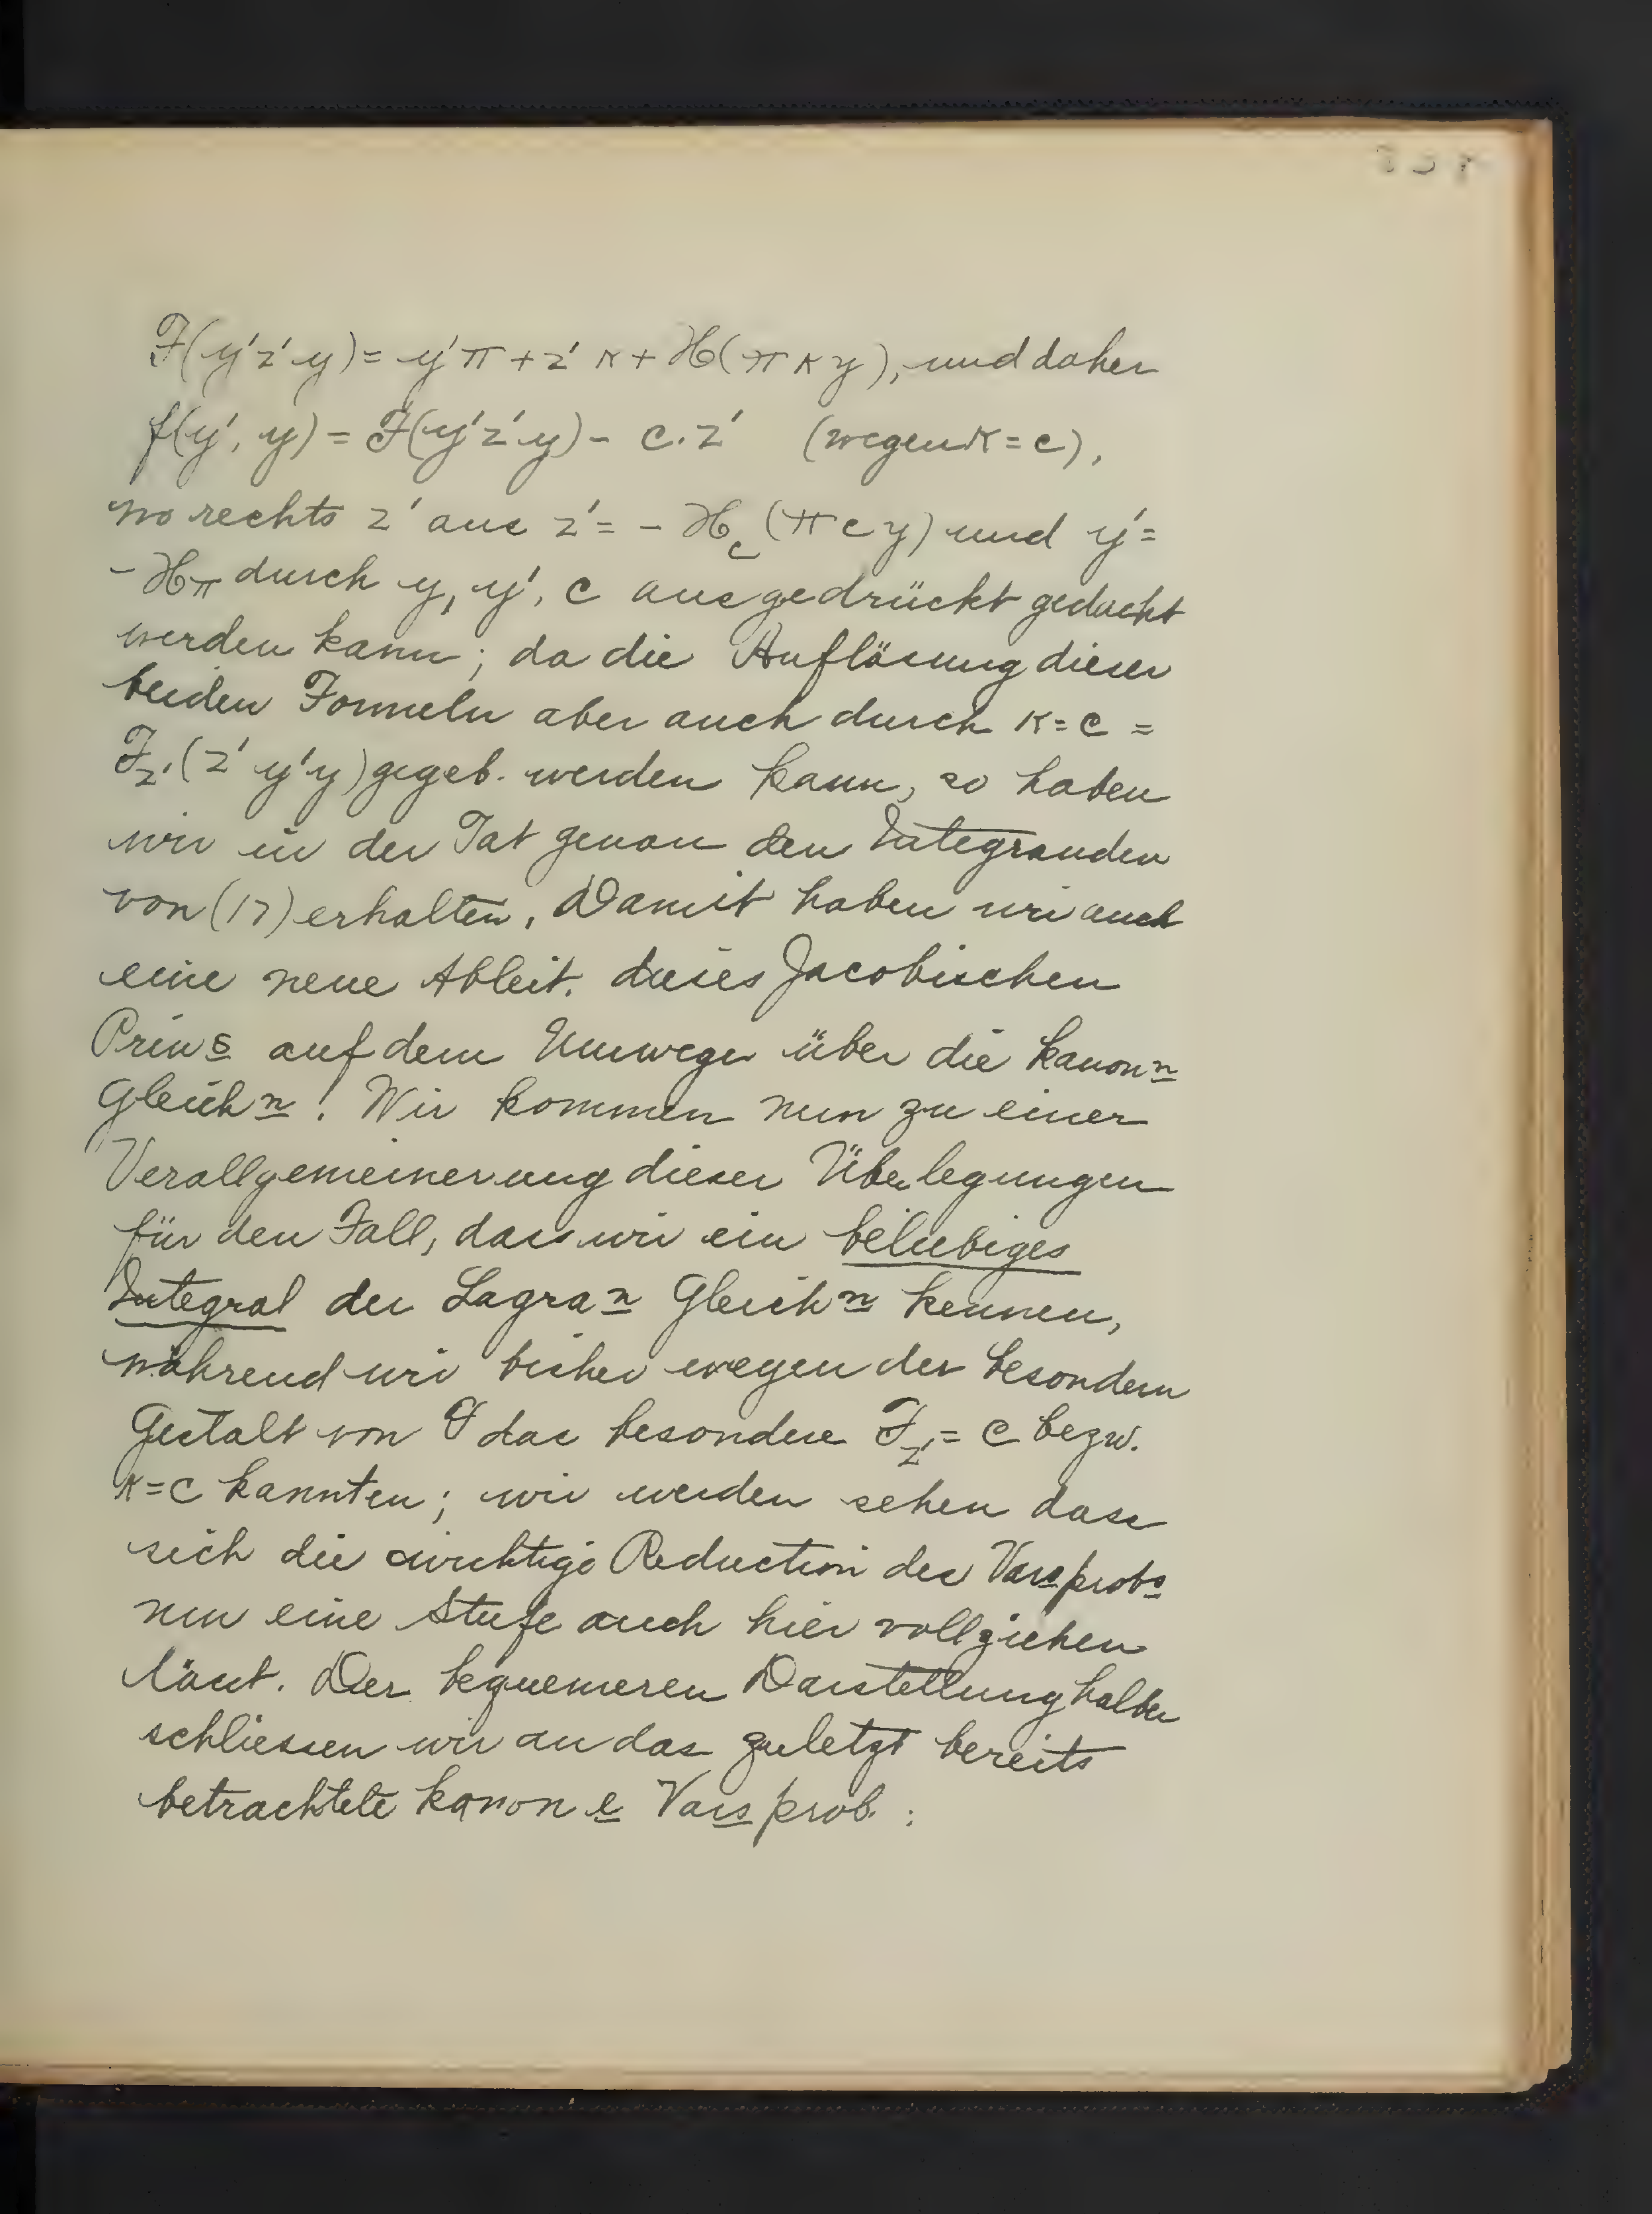 F(y'z'y) = y'π + z'κ + H(πκy), und daher
f(y', y) = F(y'z'y) - c.z' (wegen κ = c),
wo rechts z' aus z' = - H_c (πcy) und y' =
- H_π durch y, y', c ausgedrückt gedacht
werden kann; da die Auflösung dieser
beiden Formeln aber auch durch κ = c =
F_z' (z' y' y) gegeb. werden kann, so haben
wir in der Tat genau den Integranden
von (17) erhalten. Damit haben wir auch
eine neue Ableit. dieses Jacobischen
Prins auf dem Umwege über die kanonn
Gleichn! Wir kommen nun zu einer
Verallgemeinerung dieser Überlegungen
für den Fall, dass wir ein beliebiges
Integral der Lagran Gleichn kennen,
während wir bisher wegen der besondern
Gestalt von F das besondere F_z' = c bezw.
κ = c kannten; wir werden sehen dass
sich die wichtige Reduction des Varsprobs
um eine Stufe auch hier vollziehen
lässt. Der bequemeren Darstellung halber
schliessen wir an das zuletzt bereits
betrachtete kanone Varsprob.: